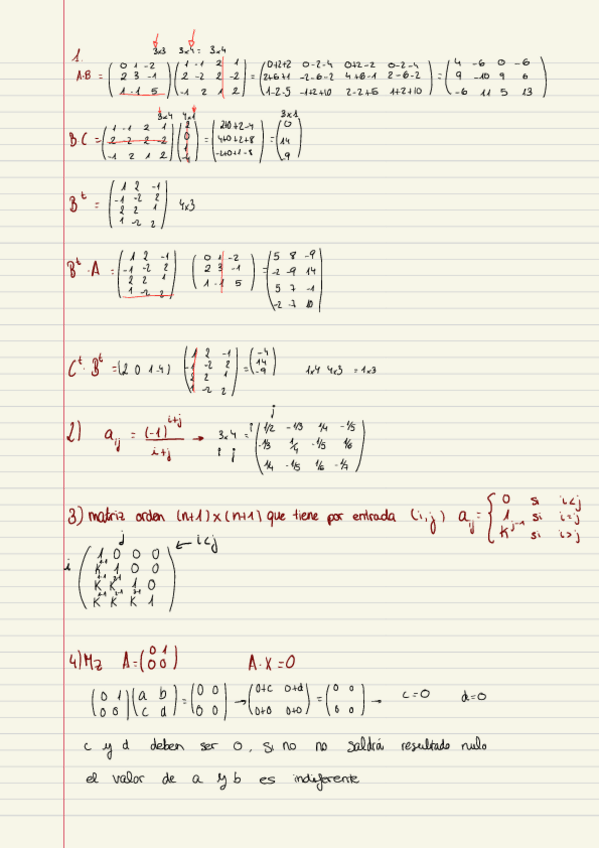 1.
3x3 3x4 = 3x4
A·B = (0 1 -2 / 2 3 -1 / 1 -1 5) (1 -1 2 1 / 2 -2 2 -2 / -1 2 1 2) = (0+2+2 0-2-4 0+2-2 0-2-4 / 2+6+1 -2-6-2 4+6-1 2-6-2 / 1-2-5 -1+2+10 2-2+5 1+2+10) = (4 -6 0 -6 / 9 -10 9 6 / -6 11 5 13)
3x4 4x1 3x1
B·C = (1 -1 2 1 / 2 -2 2 -2 / -1 2 1 2) (2 0 1 -4) = (2+0+2-4 / 4+0+2+8 / -2+0+1-8) = (0 14 9)
B^t = (1 2 -1 / -1 -2 2 / 2 2 1 / 1 -2 2) 4x3
B^t · A = (1 2 -1 / -1 -2 2 / 2 2 1 / 1 -2 2) (0 1 -2 / 2 3 -1 / 1 -1 5) = (5 8 -9 / -2 -9 14 / 5 7 -1 / -2 -7 10)
C^t · B^t = (2 0 1 -4) (1 2 -1 / -1 -2 2 / 2 2 1 / 1 -2 2) = (-4 14 -9) 1x4 4x3 = 1x3
2) a_ij = (-1)^i+j / i+j → 3x4 = i j (1/2 -1/3 1/4 -1/5 / -1/3 1/4 -1/5 1/6 / 1/4 -1/5 1/6 -1/7)
3) matriz orden (n+1) x (n+1) que tiene por entrada (i, j) a_ij = { 0 si i<j
1 si i=j
K^j-1 si i>j
j ← i<j
i (1 0 0 0 / K 1 0 0 / K K 1 0 / K K K 1)
4) M2 A = (0 1 / 0 0) A·X = 0
(0 1 / 0 0) (a b / c d) = (0 0 / 0 0) → (0+c 0+d / 0+0 0+0) = (0 0 / 0 0) → c=0 d=0
c y d deben ser 0, si no no saldrá resultado nulo
el valor de a y b es indiferente